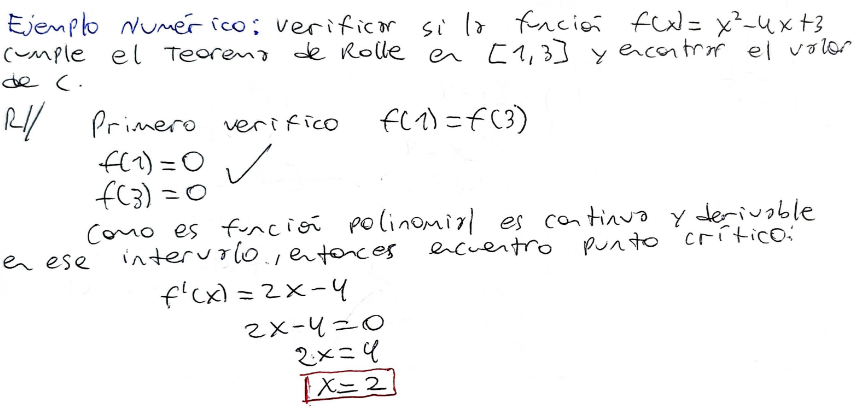 Ejemplo Numérico: verificar si la función f(x) = x²-4x+3
cumple el Teorema de Rolle en [1,3] y encontrar el valor
de c.
R// Primero verifico f(1) = f(3)
f(1) = 0 ✓
f(3) = 0
Como es función polinomial es continua y derivable
en ese intervalo, entonces encuentro punto crítico:
f'(x) = 2x-4
2x-4=0
2x=4
x=2